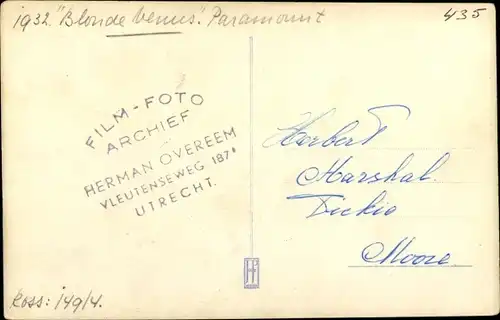 1932. "Blonde Venus". Paramount
435
FILM-FOTO
ARCHIEF
HERMAN OVEREEM
VLEUTENSEWEG 187ª
UTRECHT.
Herbert
Marshal.
Dickie
Moore.
Ross: 149/4.